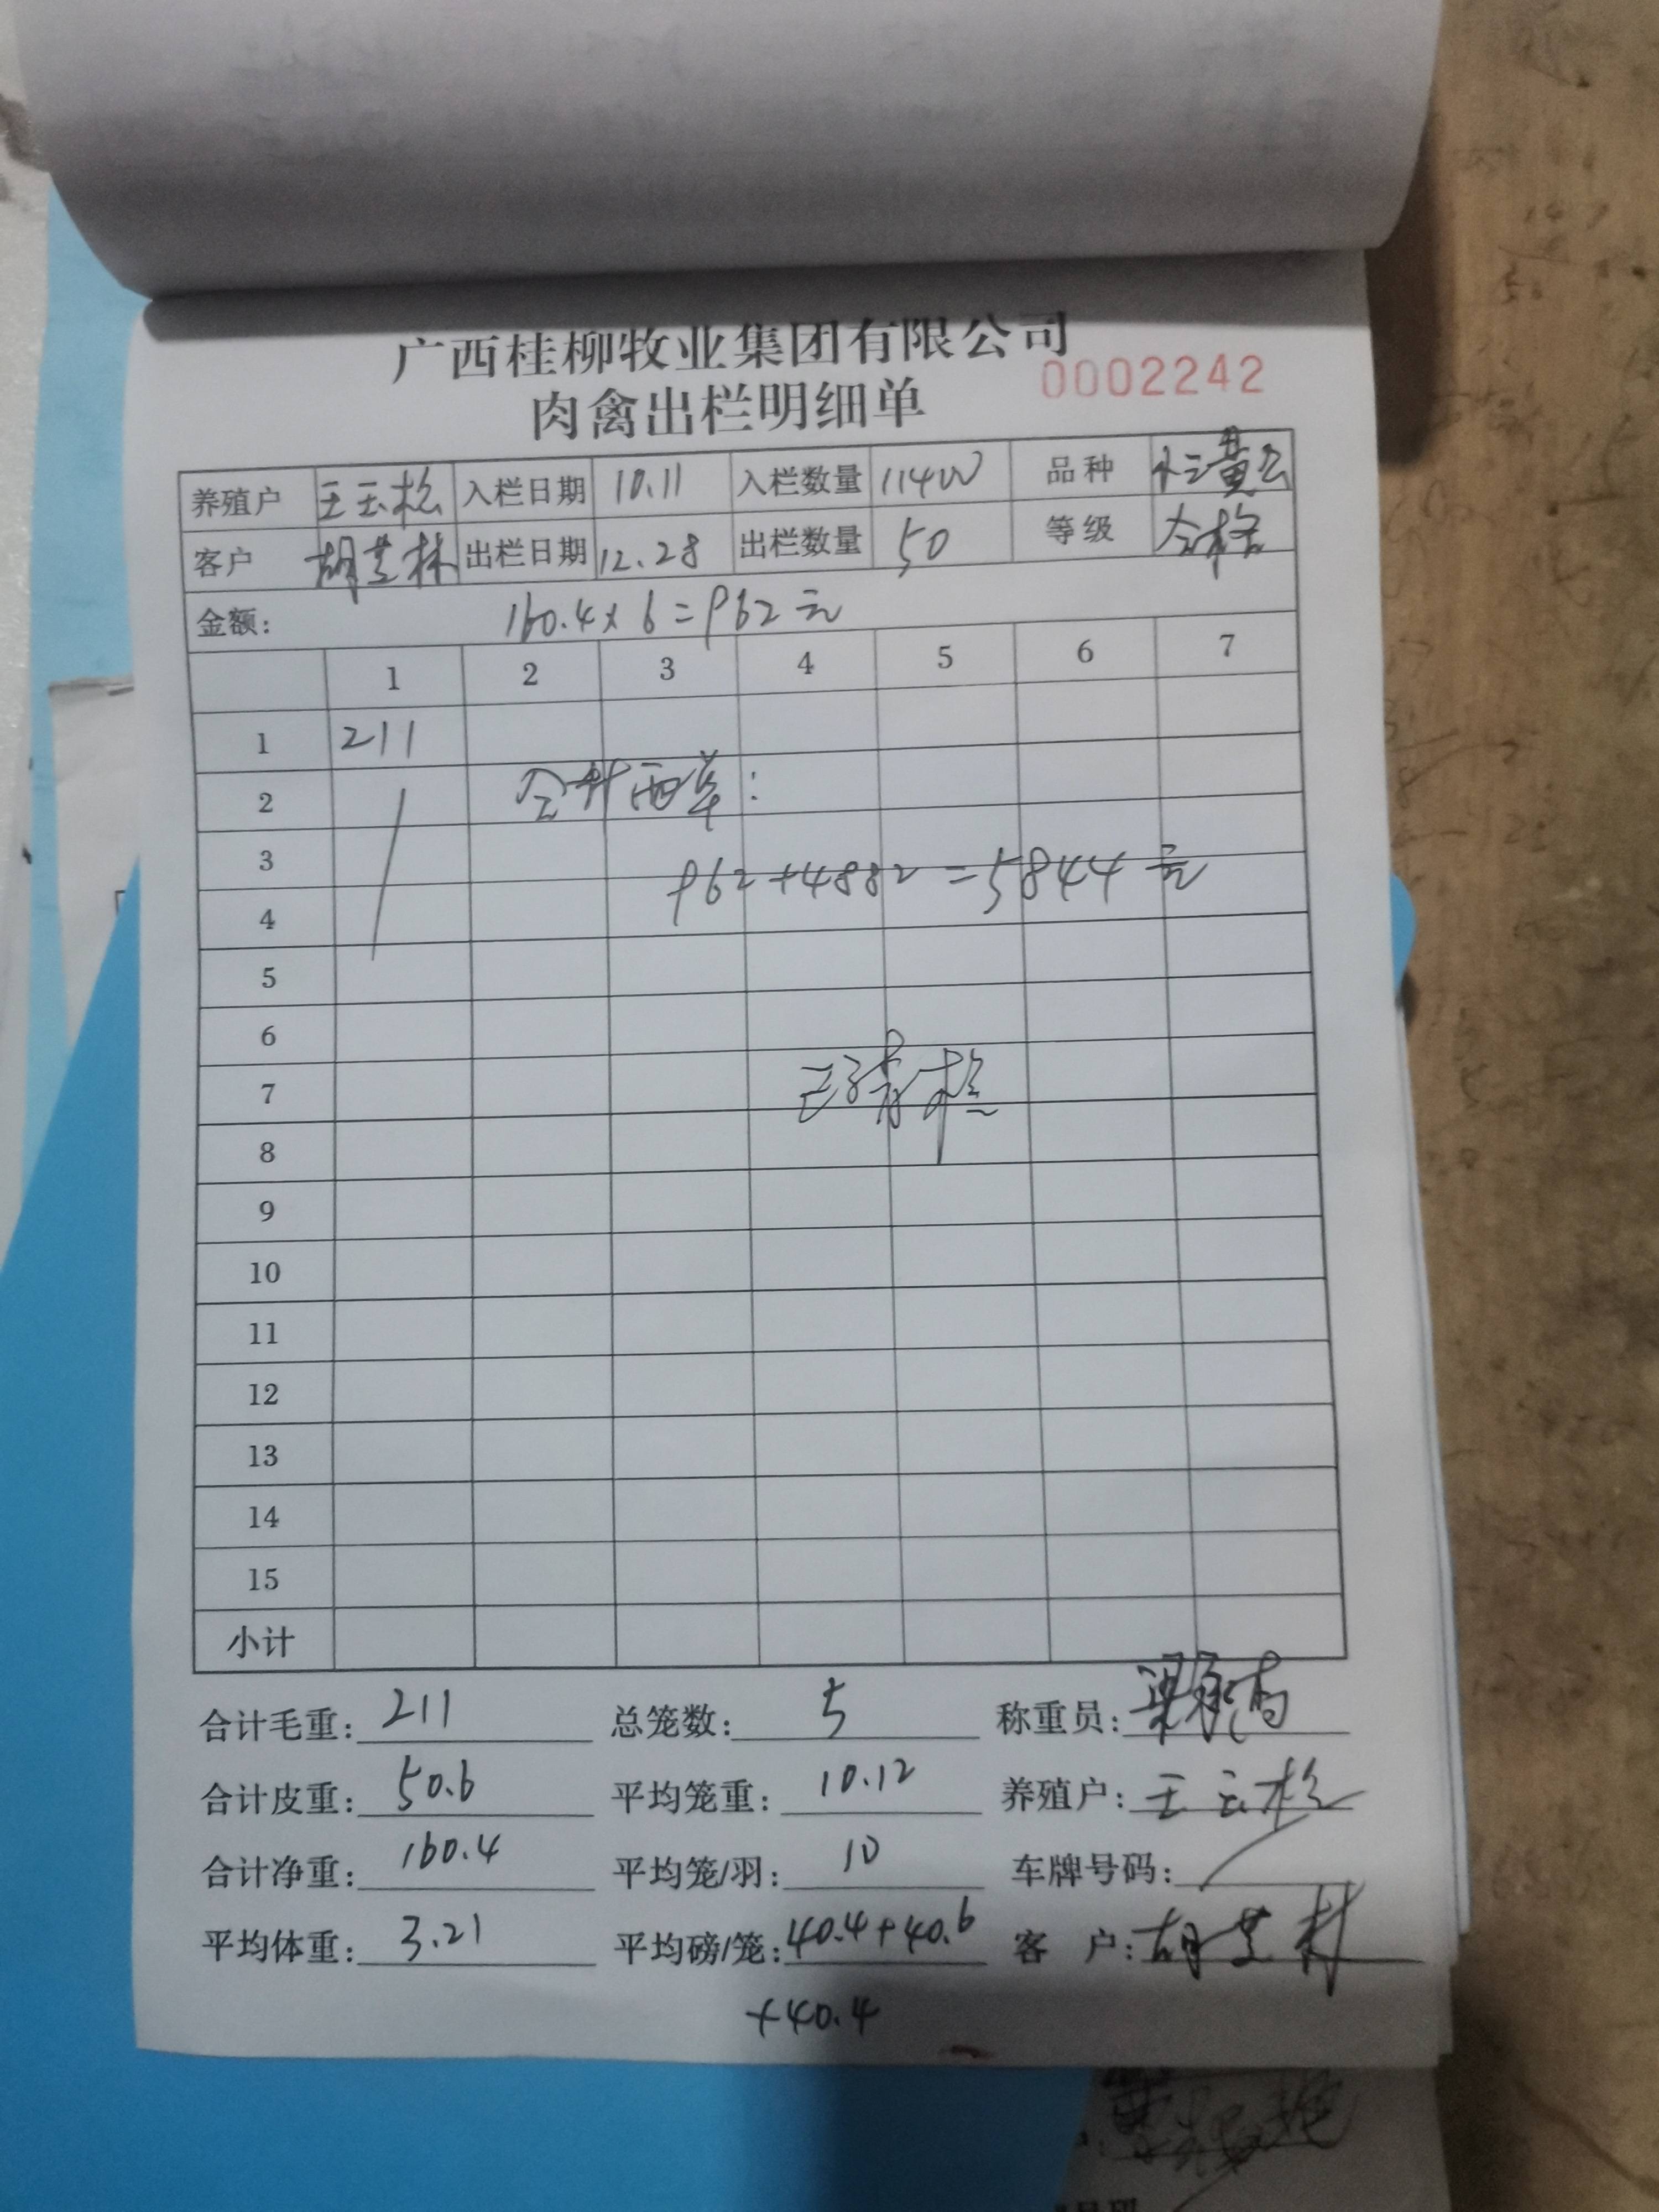 广西桂柳牧业集团有限公司
肉禽出栏明细单 0002242
养殖户 王云松 入栏日期 10.11 入栏数量 11400 品种
客户 胡芝林 出栏日期 12.28 出栏数量 50 等级 合格
金额: 160.4×6=962元
1 2 3 4 5 6 7
1 211
2 合计两单:
3
962+4882=5844元
4
5
6
7
8
9
10
11
12
13
14
15
小计
合计毛重: 211 总笼数: 5 称重员:
合计皮重: 50.6 平均笼重: 10.12 养殖户: 王云松
合计净重: 160.4 平均笼/羽: 10 车牌号码:
平均体重: 3.21 平均磅/笼: 40.4+40.6 客 户: 胡芝林
+40.4